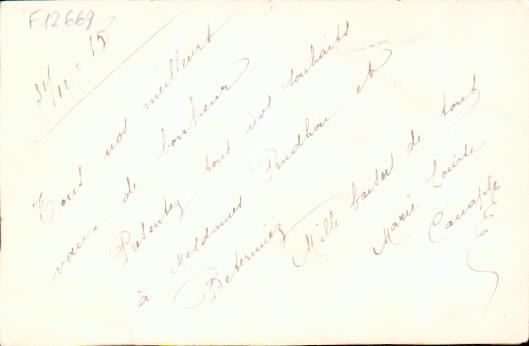 F-12669
31/12 - 18
Tous nos meilleurs
vœux de bonheur
Présentez tous nos souhaits
à Mesdames Prudhon et
Mille baisers de tous
Marie Louise